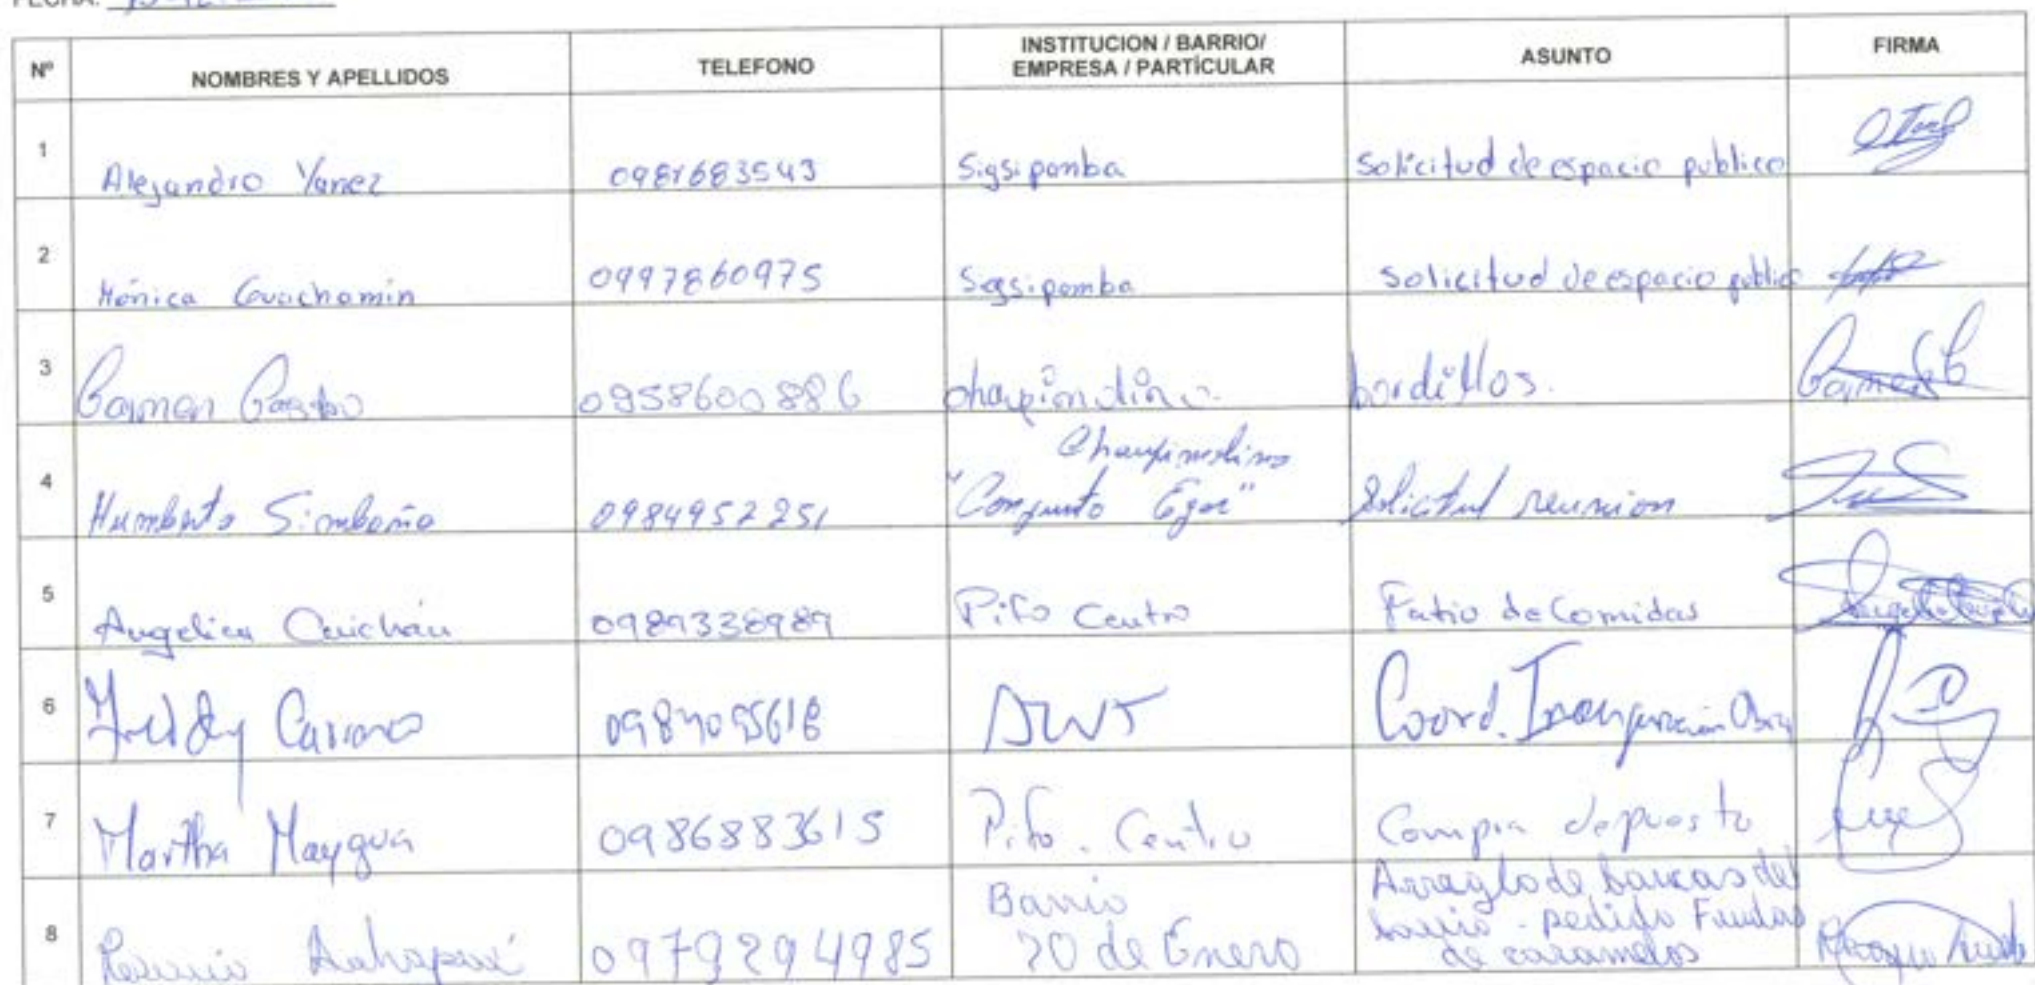 FECHA:
Nº NOMBRES Y APELLIDOS TELEFONO INSTITUCION / BARRIO/ EMPRESA / PARTÍCULAR ASUNTO FIRMA
1 Alejandro Yanez 0981683543 Sigsipamba Solicitud de espacio publico
2 Mónica Guachamin 0997860975 Sigsipamba Solicitud de espacio public
3 Carmen Castro 0958600886 bordillos.
4 Humberto Simbaña 0984952251 Chaupimolino "Conjunto" Solicitud reunion
5 Angelica Cuichán 0989338989 Pifo Centro Patio de Comidas
6 Freddy 0987095618 Coord. Inauguración Obra
7 Martha Maygua 0986883615 Pifo. Centro Compra de puesto
8 0979294985 Barrio 20 de Enero Arreglo de bancas del barrio - pedido Fundas de caramelos